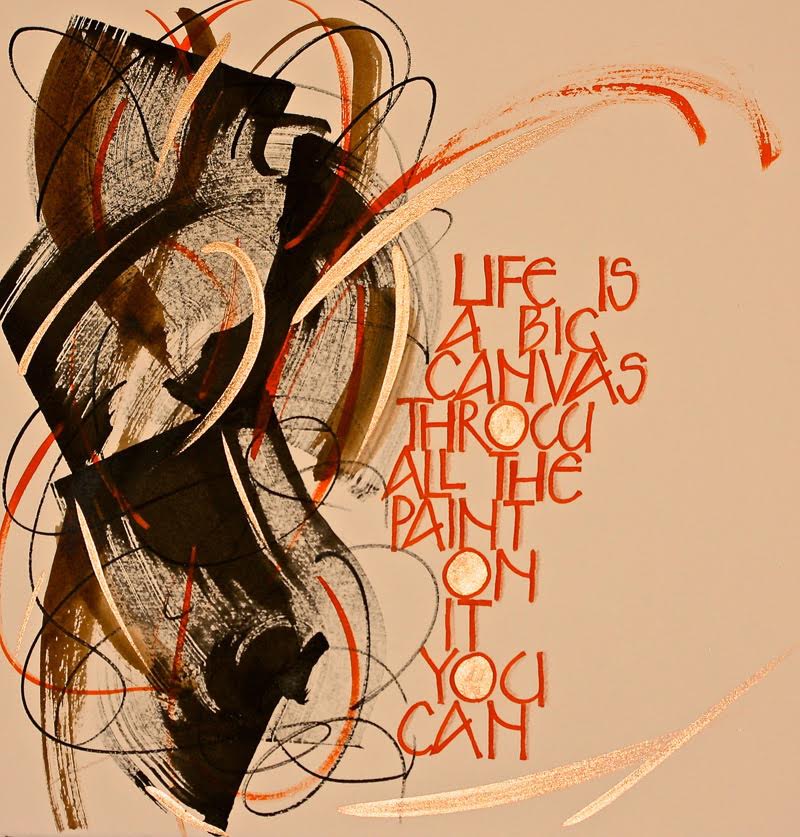 LIFE IS
A BIG
CANVAS
THROW
ALL THE
PAINT
ON
IT
YOU
CAN